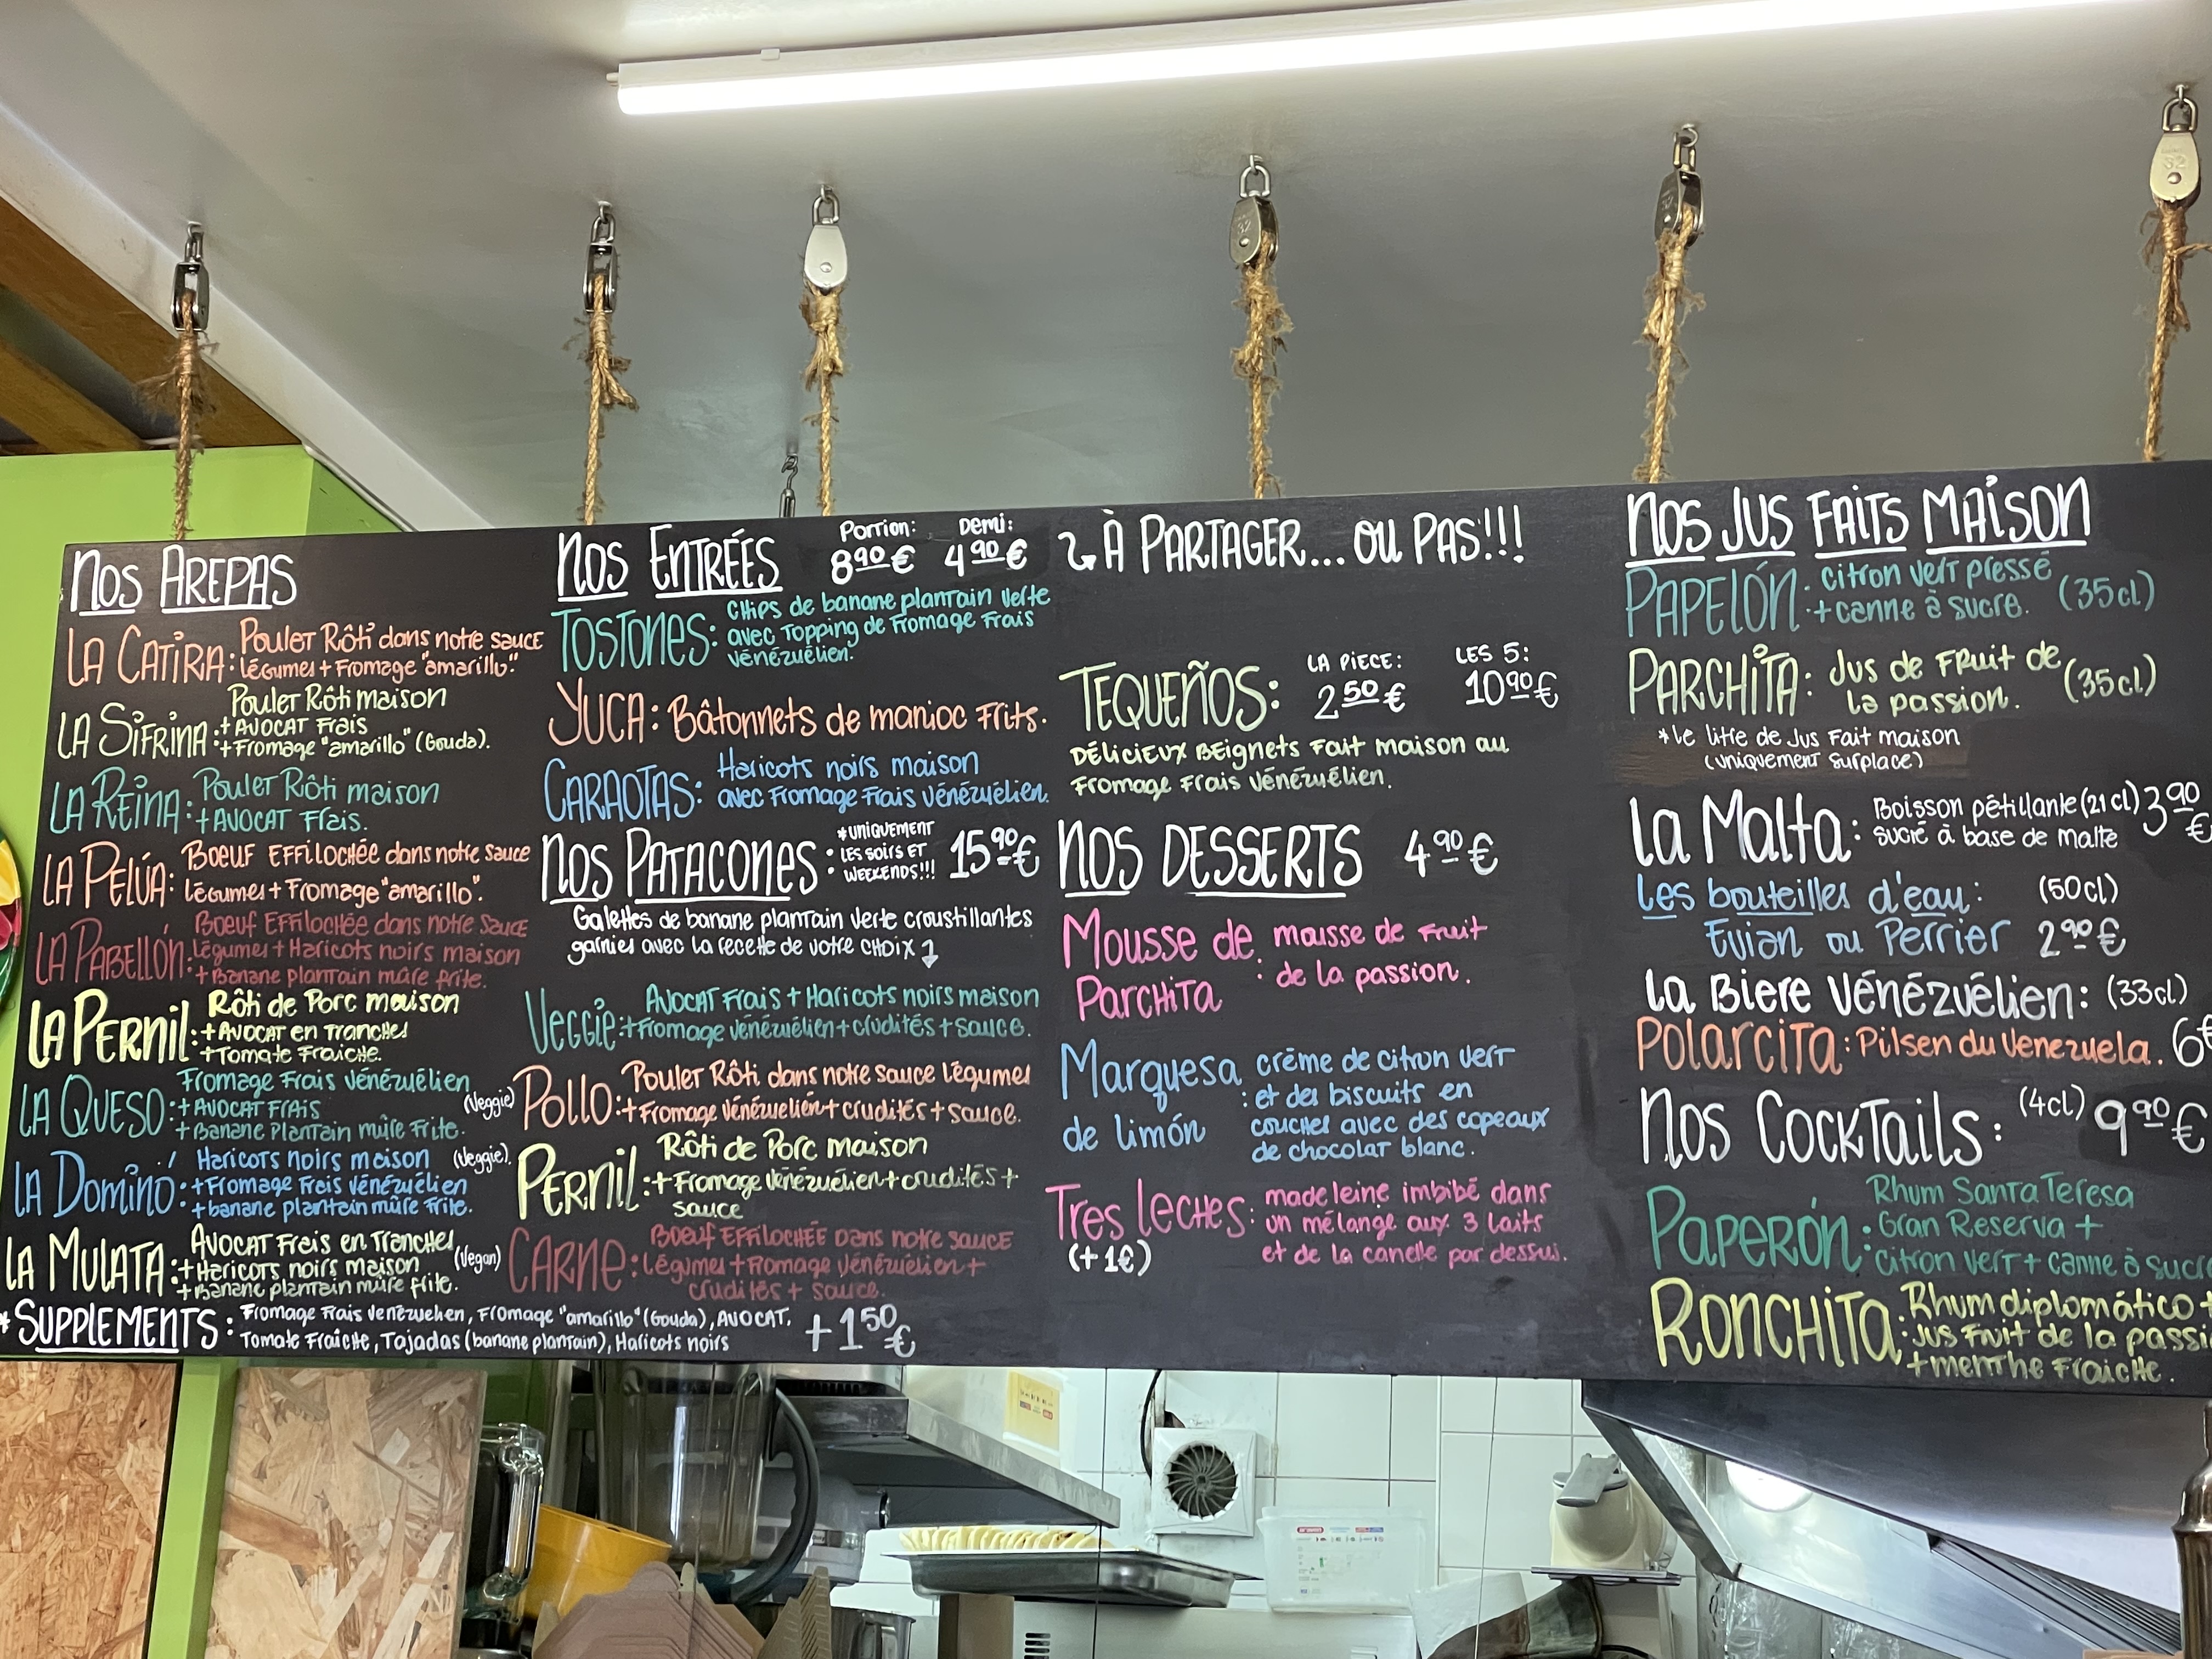 Nos Arepas
La Catira: Poulet Rôti dans notre sauce
légumes + Fromage "amarillo".
Poulet Rôti maison
La Sifrina: + Avocat Frais
+ Fromage "amarillo" (Gouda).
La Reina: Poulet Rôti maison
+ Avocat Frais.
La Pelúa: Boeuf Effilochée dans notre sauce
légumes + Fromage "amarillo".
Boeuf Effilochée dans notre sauce
La Pabellón: légumes + Haricots noirs maison
+ Banane plantain mûre frite.
La Pernil: Rôti de Porc maison
+ Avocat en Tranches
+ Tomate Fraiche.
Fromage Frais Vénézuélien
La Queso: + Avocat Frais (Veggie)
+ Banane Plantain mûre Frite.
Haricots noirs maison (Veggie).
La Dominó: + Fromage Frais Vénézuélien
+ banane plantain mûre frite.
Avocat Frais en Tranches
La Mulata: + Haricots noirs maison (Vegan)
+ Banane plantain mûre frite.
*Supplements: Fromage Frais Venezuelien, Fromage "amarillo" (Gouda), Avocat,
Tomate Fraîche, Tajadas (banane plantain), Haricots noirs +150€
Nos Entrées Portion: 890€ Demi: 490€
Tostones: Chips de banane plantain verte
avec Topping de Fromage Frais
Vénézuélien.
Yuca: Bâtonnets de manioc Frits.
Caraotas: Haricots noirs maison
avec Fromage Frais Vénézuélien.
Nos Patacones: *uniquement les soirs et weekends!!! 1590€
Galettes de banane plantain verte croustillantes
garnies avec la recette de votre choix
Veggie: Avocat Frais + Haricots noirs maison
+ Fromage Vénézuélien + crudités + sauce.
Pollo: Poulet Rôti dans notre sauce légumes
+ Fromage Vénézuelien + crudités + sauce.
Pernil: Rôti de Porc maison
+ Fromage Vénézuélien + crudités +
sauce
Carne: Boeuf Effilochée dans notre sauce
légumes + Fromage Vénézuélien +
crudités + sauce.
À Partager... ou pas!!!
Tequeños: La piece: 250€ Les 5: 1090€
Délicieux Beignets Fait maison au
Fromage Frais Vénézuélien.
Nos Desserts 490€
Mousse de Parchita: mousse de Fruit
de la passion.
Marquesa de limón: crème de citron vert
et des biscuits en
couches avec des copeaux
de chocolat blanc.
Tres leches: madeleine imbibé dans
un mélange aux 3 laits
(+1€) et de la canelle par dessus.
Nos Jus Faits Maison
Papelón: citron vert pressé
+ canne à sucre. (35cl)
Parchita: Jus de Fruit de
la passion. (35cl)
*le litre de Jus Fait maison
(uniquement surplace)
La Malta: Boisson pétillante (21cl) 390€
sucré à base de malte
Les bouteilles d'eau: (50cl)
Evian ou Perrier 290€
La Biere Vénézuélien: (33cl)
Polarcita: Pilsen du Venezuela. 6€
Nos Cocktails: (4cl) 990€
Rhum Santa Teresa
Paperón: Gran Reserva +
Citron vert + canne à sucre
Ronchita: Rhum diplomático +
Jus Fruit de la passi
+ menthe Fraiche.